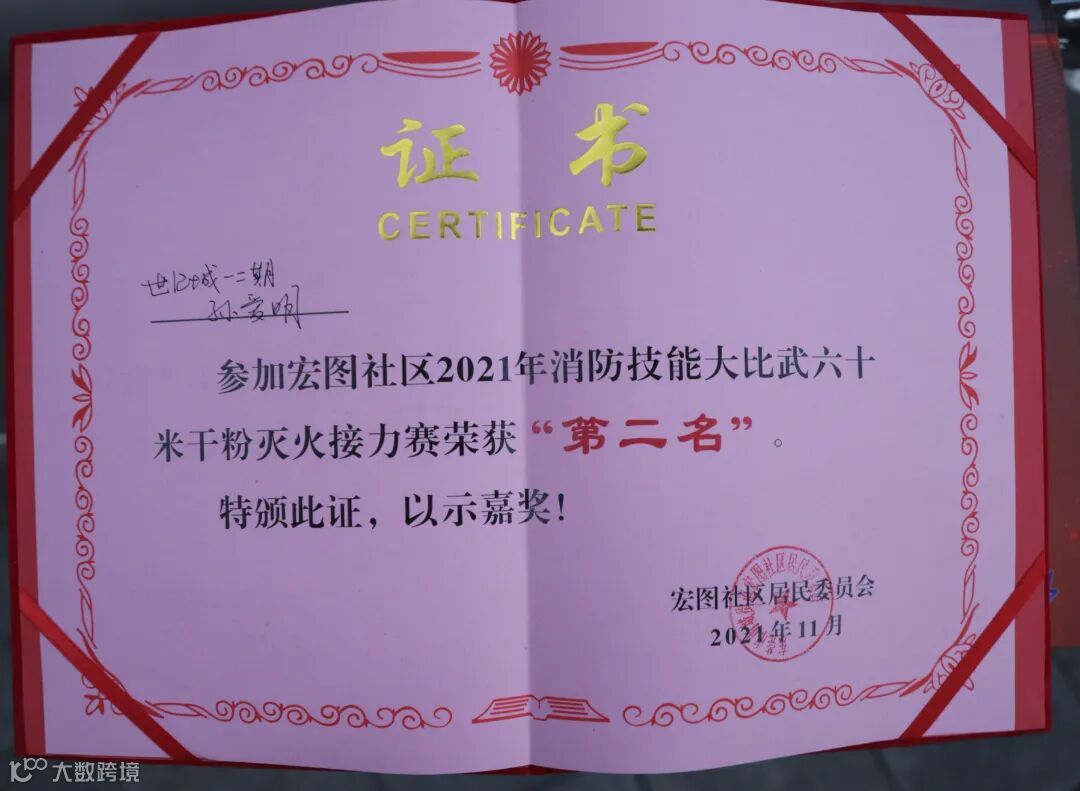 证书
CERTIFICATE
世纪城一二期
孙爱明
参加宏图社区2021年消防技能大比武六十
米干粉灭火接力赛荣获“第二名”。
特颁此证，以示嘉奖！
宏图社区居民委员会
2021年11月
大数跨境